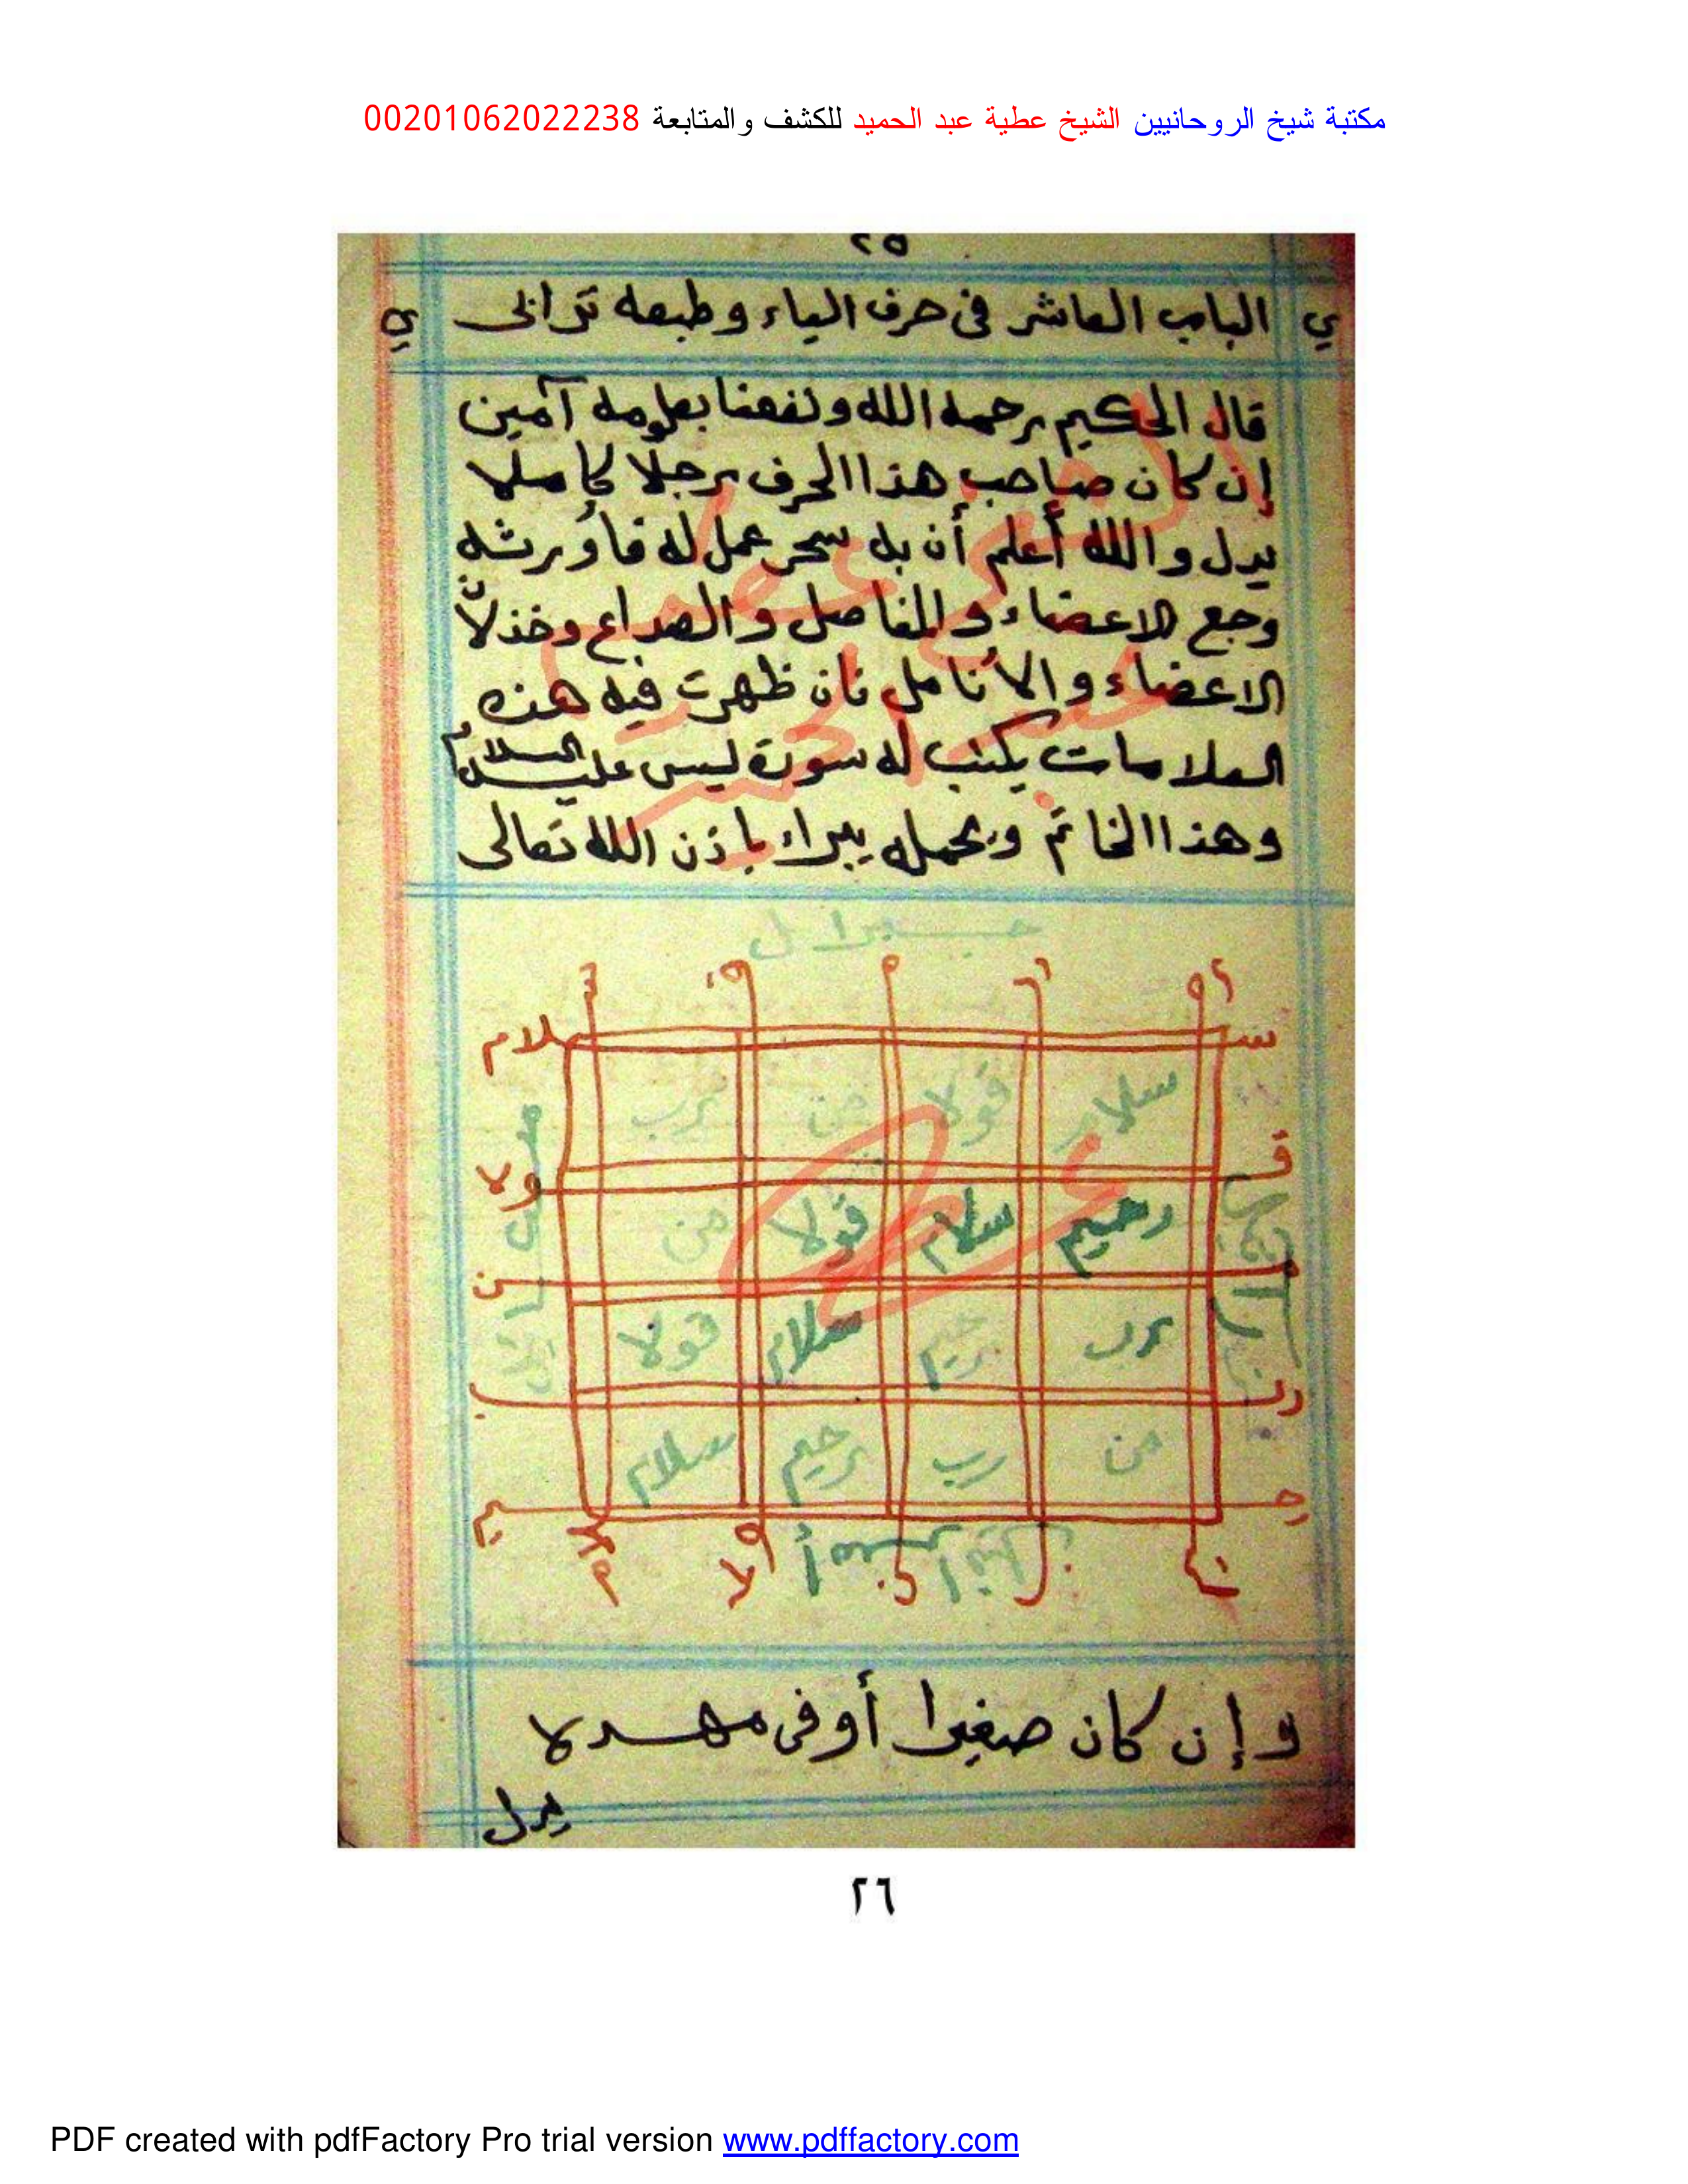 مكتبة شيخ الروحانيين الشيخ عطية عبد الحميد للكشف والمتابعة 00201062022238
٢٥
ي الباب العاشر فى حرف الياء وطبعه ترابى ي
قال الحكيم رحمه الله ونفعنا بعلومه آمين
إن كان صاحب هذا الحرف رجلا كاملا
يدل والله أعلم أن به سحر عمل له فأورثه
وجع الاعضاء والمفاصل والصداع وخذلان
الاعضاء والأنامل فان ظهرت فيه هذه
العلامات يكتب له سورة يس عليه السلام
وهذا الخاتم ويحمله يبراء باذن الله تعالى
سلام قولا من رب
رحيم سلام قولا من
رب رحيم سلام قولا
من رب رحيم سلام
وإن كان صغيرا أو فى مهد لا
يدل
٢٦
PDF created with pdfFactory Pro trial version www.pdffactory.com